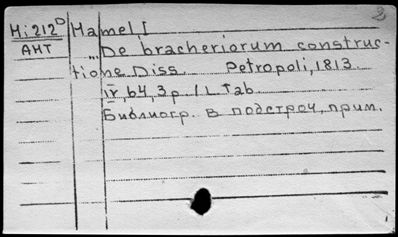 Hi212D Hamel, I
АНТ „De bracheriorum construc-
tione. Diss. Petropoli, 1813.
IV, 64, 3 p. 1 L Tab.
Библиогр. в подстроч. прим.